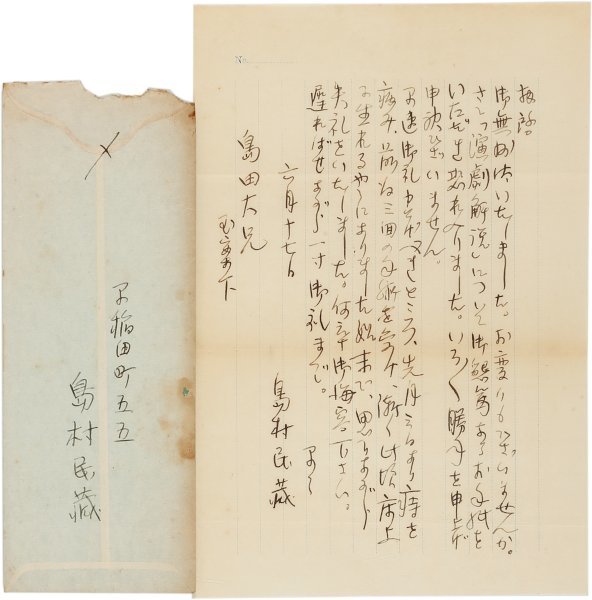 No.
拝啓
御無沙汰いたしました。お変りもございませんか。
さて「演劇解説」について御懇篤なるお手紙を
いたゞき恐れ入りました。いろ〱勝手を申上げ
申訳ございません。
早速御礼申すべきところ、先月三日より痔を
病み、前後三回の手術を受け、漸く此頃床上
に坐れるやうになりました始末で、思ひながら
失礼をいたしました。何卒御海容下さい。
遅ればせながら一寸御礼まで。
早々
六月十七日
島村民蔵
島田大兄
玉案下
〆
早稲田町五五
島村民蔵